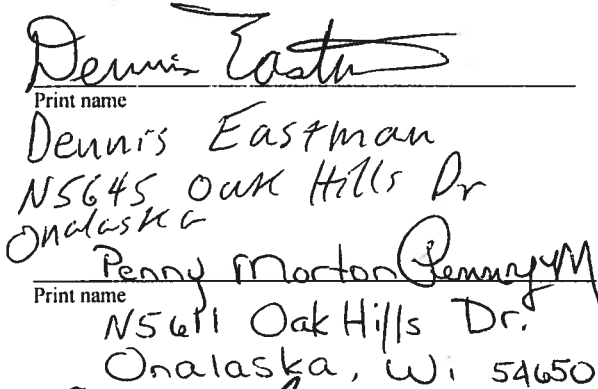 Dennis Eastm
Print name
Dennis Eastman
N5645 Oak Hills Dr
Onalaska
Penny Morton Penny M
Print name
N5611 Oak Hills Dr.
Onalaska, Wi 54650